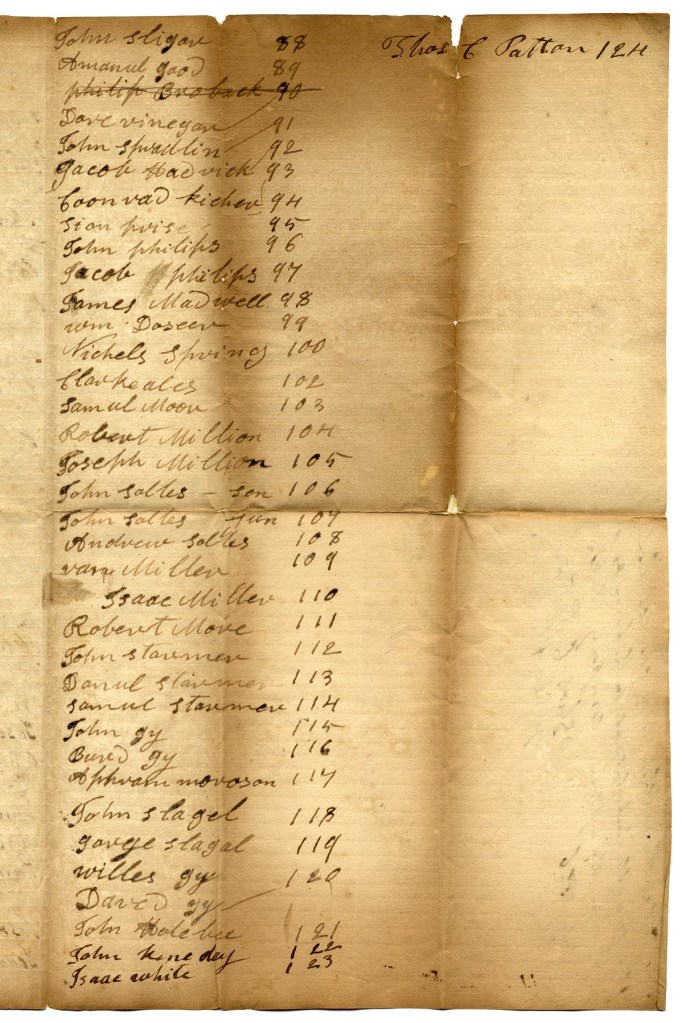 John sligar 88
Amanul good 89
philip Broback 90
Dave vinegar 91
John spradlin 92
Jacob Hadvick 93
Coonrad kicher 94
Sion prise 95
John philips 96
Jacob philips 97
James Madwell 98
wm Doseer 99
Nichels Spring 100
Clarke ales 102
Samul Moor 103
Robert Million 104
Joseph Million 105
John saltes – sen 106
John saltes jun 107
Andrew saltes 108
van Miller 109
Isaac Miller 110
Robert More 111
John starmer 112
Danul starmer 113
Samul starmer 114
John gy 115
Bured gy 116
Aphram moroson 117
John slagel 118
gorge slagal 119
willes gy 120
Dared gy
John Holebee 121
John kaneday 122
Isaac white 123
Thos C Patton 124